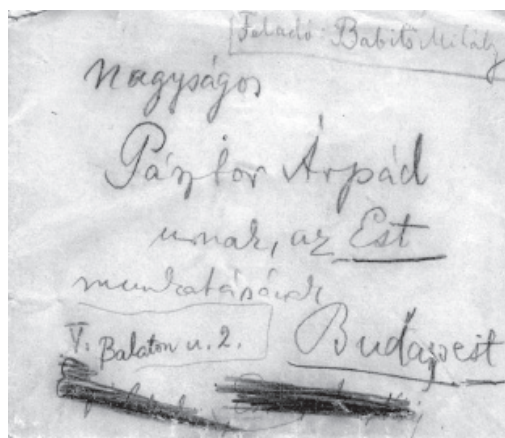 Feladó: Babits Mihály
Nagyságos
Pásztor Árpád
urnak, az Est
munkatársának
V. Balaton u. 2.
Budapest